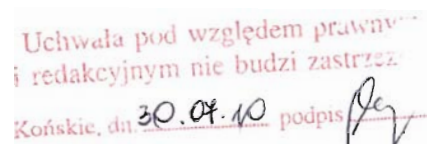 Uchwała pod względem prawny
i redakcyjnym nie budzi zastrzeż
Końskie, dn. 30.07.10 podpis